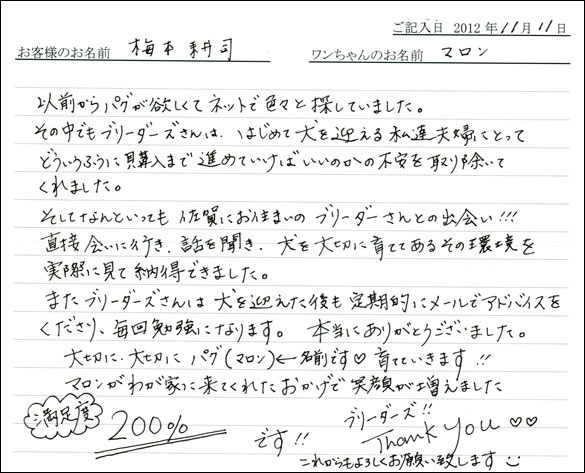 ご記入日 2012年11月11日
お客様のお名前 梅本 耕司 ワンちゃんのお名前 マロン
以前からパグが欲しくてネットで色々と探していました。
その中でもブリーダーズさんは、はじめて犬を迎える私達夫婦にとって
どういうふうに購入まで進めていけばいいのかの不安を取り除いて
くれました。
そしてなんといっても佐賀にお住まいのブリーダーさんとの出会い!!!
直接会いに行き、話を聞き、犬を大切に育ててあるその環境を
実際に見て納得できました。
またブリーダーズさんは犬を迎えた後も定期的にメールでアドバイスを
くださり、毎回勉強になります。 本当にありがとうございました。
大切に、大切にパグ(マロン)←名前です♡育てていきます!!
マロンがわが家に来てくれたおかげで笑顔が増えました
満足度 200% です!!
ブリーダーズ!!
Thank You ♡♡
これからもよろしくお願い致します